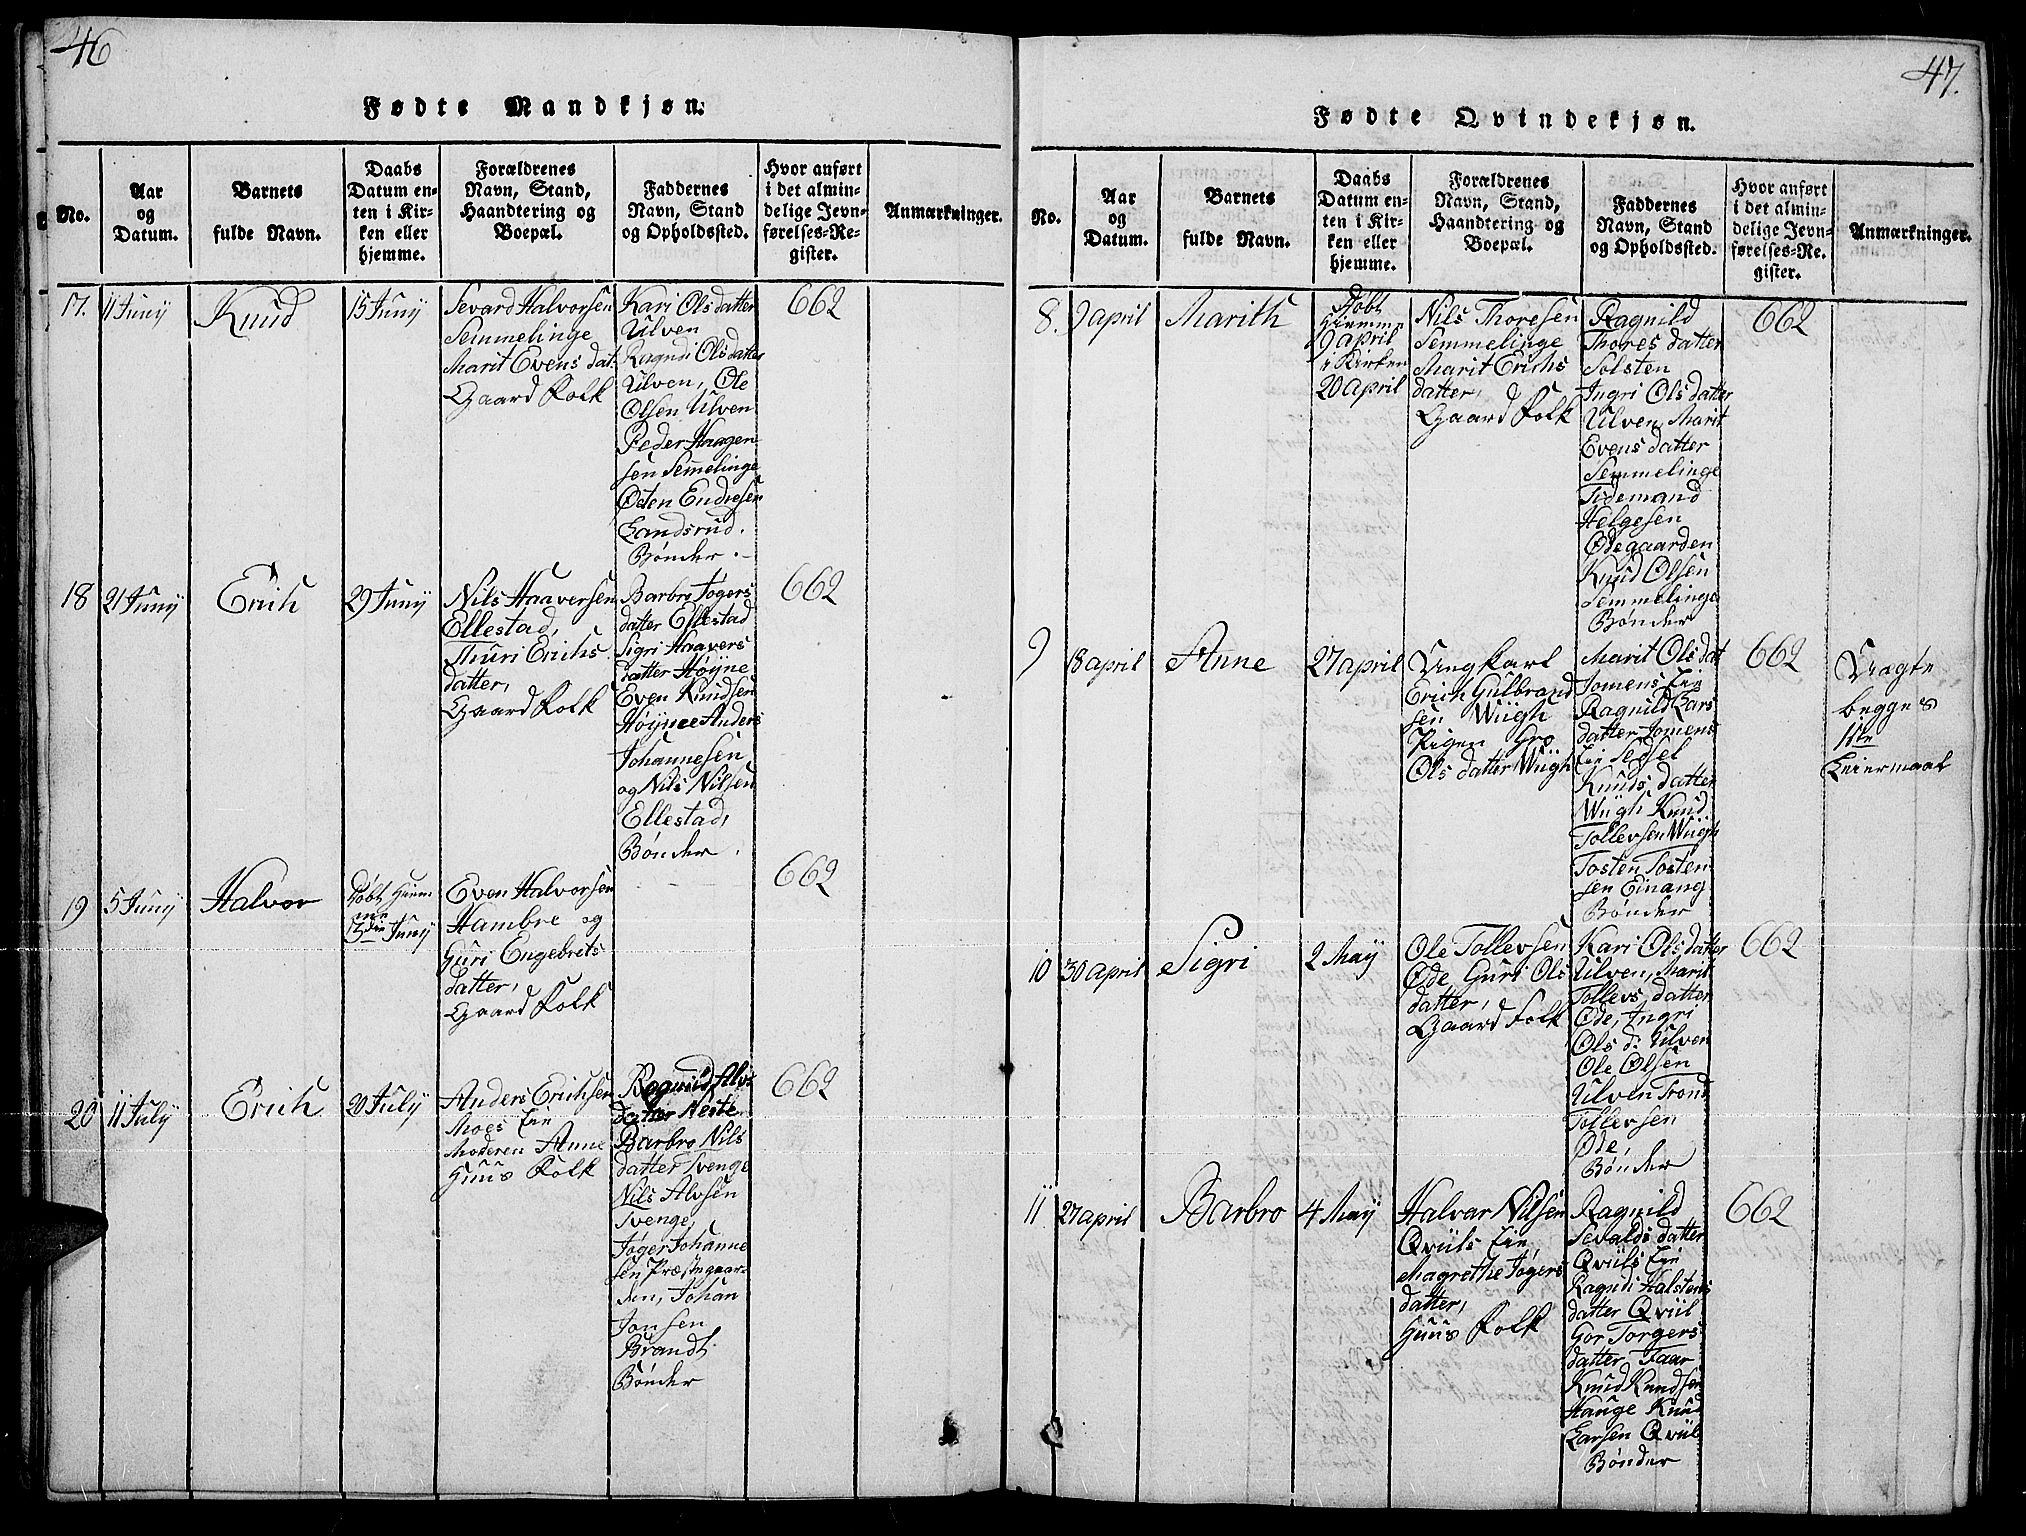 46
Fødte Mandkjøn.
No.
Aar
og
Datum.
Barnets
fulde Navn.
Daabs
Datum en-
ten i Kir-
ken eller
hjemme.
Forældrenes
Navn, Stand,
Haandtering og
Boepæl.
Faddernes
Navn, Stand
og Opholdssted.
Hvor anført
i det almin-
delige Jevn-
førelses-Re-
gister.
Anmærkninger.
17. 11 Juny
Knud
15 Juny
Sevard Halvorsen
Semmelinge
Marit Evens dat.
Gaard Folk
Kari Ols datter
Ulven
Ragndi Ols datter
Ulven, Ole
Olsen Ulven
Peder Haagen
sen Semelinge
Østen Endresen
Landsrud.
Bønder.
662
18 21 Juny
Erich
29 Juny
Nils Haaversen
Ellestad,
Thuri Erichs
datter,
Gaard Folk
Barbro Jøgers
datter Ellestad
Sigri Haavers
datter Høyne
Even Knudsen
Høyne Anders
Johannesen
og Nils Nilsen
Ellestad,
Bønder
662
19 5 Juny
Halvor
Døbt Hiem
me
5 die Juny
Even Halvorsen
Hambre og
Guri Engebrets
datter,
Gaard Folk
662
20 11 July
Erich
20 July
Anders Erichsen
Moes Eie
Moderen Anne
Huus Folk
Ragnild Alvs
datter Neste
Barbro Nils
datter Tvenge
Nils Alvsen
Tvenge,
Jøger Johanne
sen Præstegaar-
den, Johan
Jonsen
Brandt.
Bønder
662
47.
Fødte Qvindekjøn.
No.
Aar
og
Datum.
Barnets
fulde Navn.
Daabs
Datum en-
ten i Kir-
ken eller
hjemme.
Forældrenes
Navn, Stand,
Haandtering og
Boepæl.
Faddernes
Navn, Stand
og Opholdssted.
Hvor anført
i det almin-
delige Jevn-
førelses-Re-
gister.
Anmærkninger.
8. 9 april
Marith
Døbt
Hiemme
9 april
i Kirken
20 april
Nils Thoresen
Semmelinge
Marit Erichs
datter,
Gaard Folk
Ragnild
Thores datter
Solsten
Ingri Ols datter
Ulven, Marit
Evens datter
Semmelinge
Tidemand
Helgesen
Ødegaarden
Knud Olsen
Semmelinge
Bønder
662
9 18 april
Anne
27 april
Ungkarl
Erich Gulbrand
sen Wiigh
Pigen Gro
Ols datter Wiigh
Marit Ols dat
Jomens Eie
Ragnild Lars
datter Jomens
Eie Sessel
Knuds datter
Wiigh Knud
Tollevsen Wiigh
Tosten Tosten
sen Einang
Bønder
662
Uægte
begges
1ste
Leiermaal
10 30 april
Sigri
2 May
Ole Tollevsen
Øde Guri Ols
datter,
Gaard Folk
Kari Ols datter
Ulven, Marit
Tollevs datter
Øde, Ingri
Ols d: Ulven
Ole Olsen
Ulven Trond
Tollevsen
Øde,
Bønder
662
11 27 april
Barbro
4 May
Halvar Nilsen
Qviils Eie,
Magrethe Jøgers
datter,
Huus Folk
Ragnild
Sevalds datter
Qviils Eie
Ragndi Halstens
datter Qviil
Gor Torgers
datter Faar
Knud Knudsen
Hauge Knud
Larsen Qviil
Bønder
662